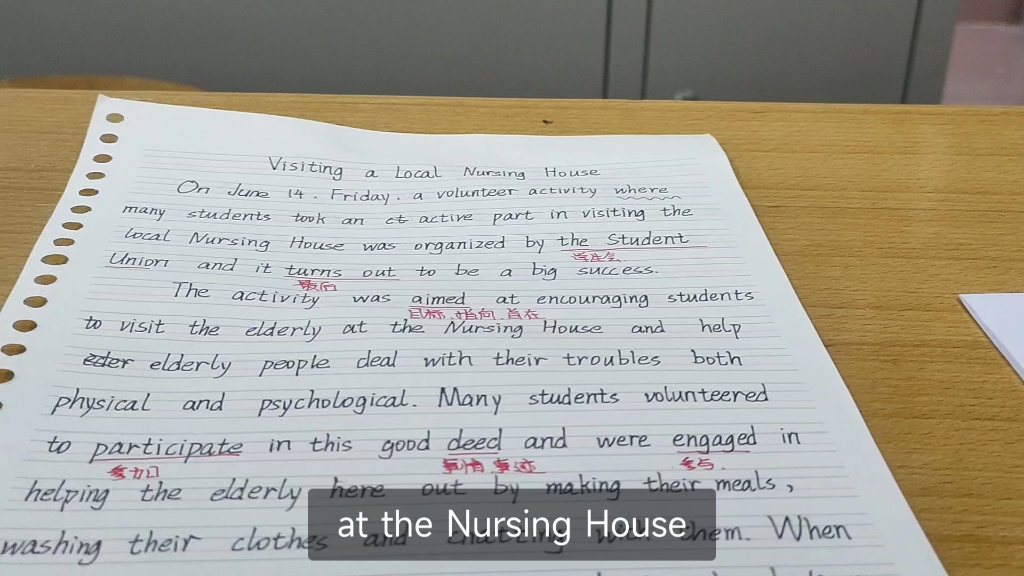 Visiting a Local Nursing House
On June 14, Friday, a volunteer activity where
many students took an ct active part in visiting the
local Nursing House was organized by the Student
学生会
Union and it turns out to be a big success.
最后
The activity was aimed at encouraging students
目标,指向,旨在
to visit the elderly at the Nursing House and help
elderly people deal with their troubles both
physical and psychological. Many students volunteered
to participate in this good deed and were engaged in
参加 事情 事迹 参与
helping the elderly here out by making their meals,
washing their clothes and chatting with them. When
at the Nursing House